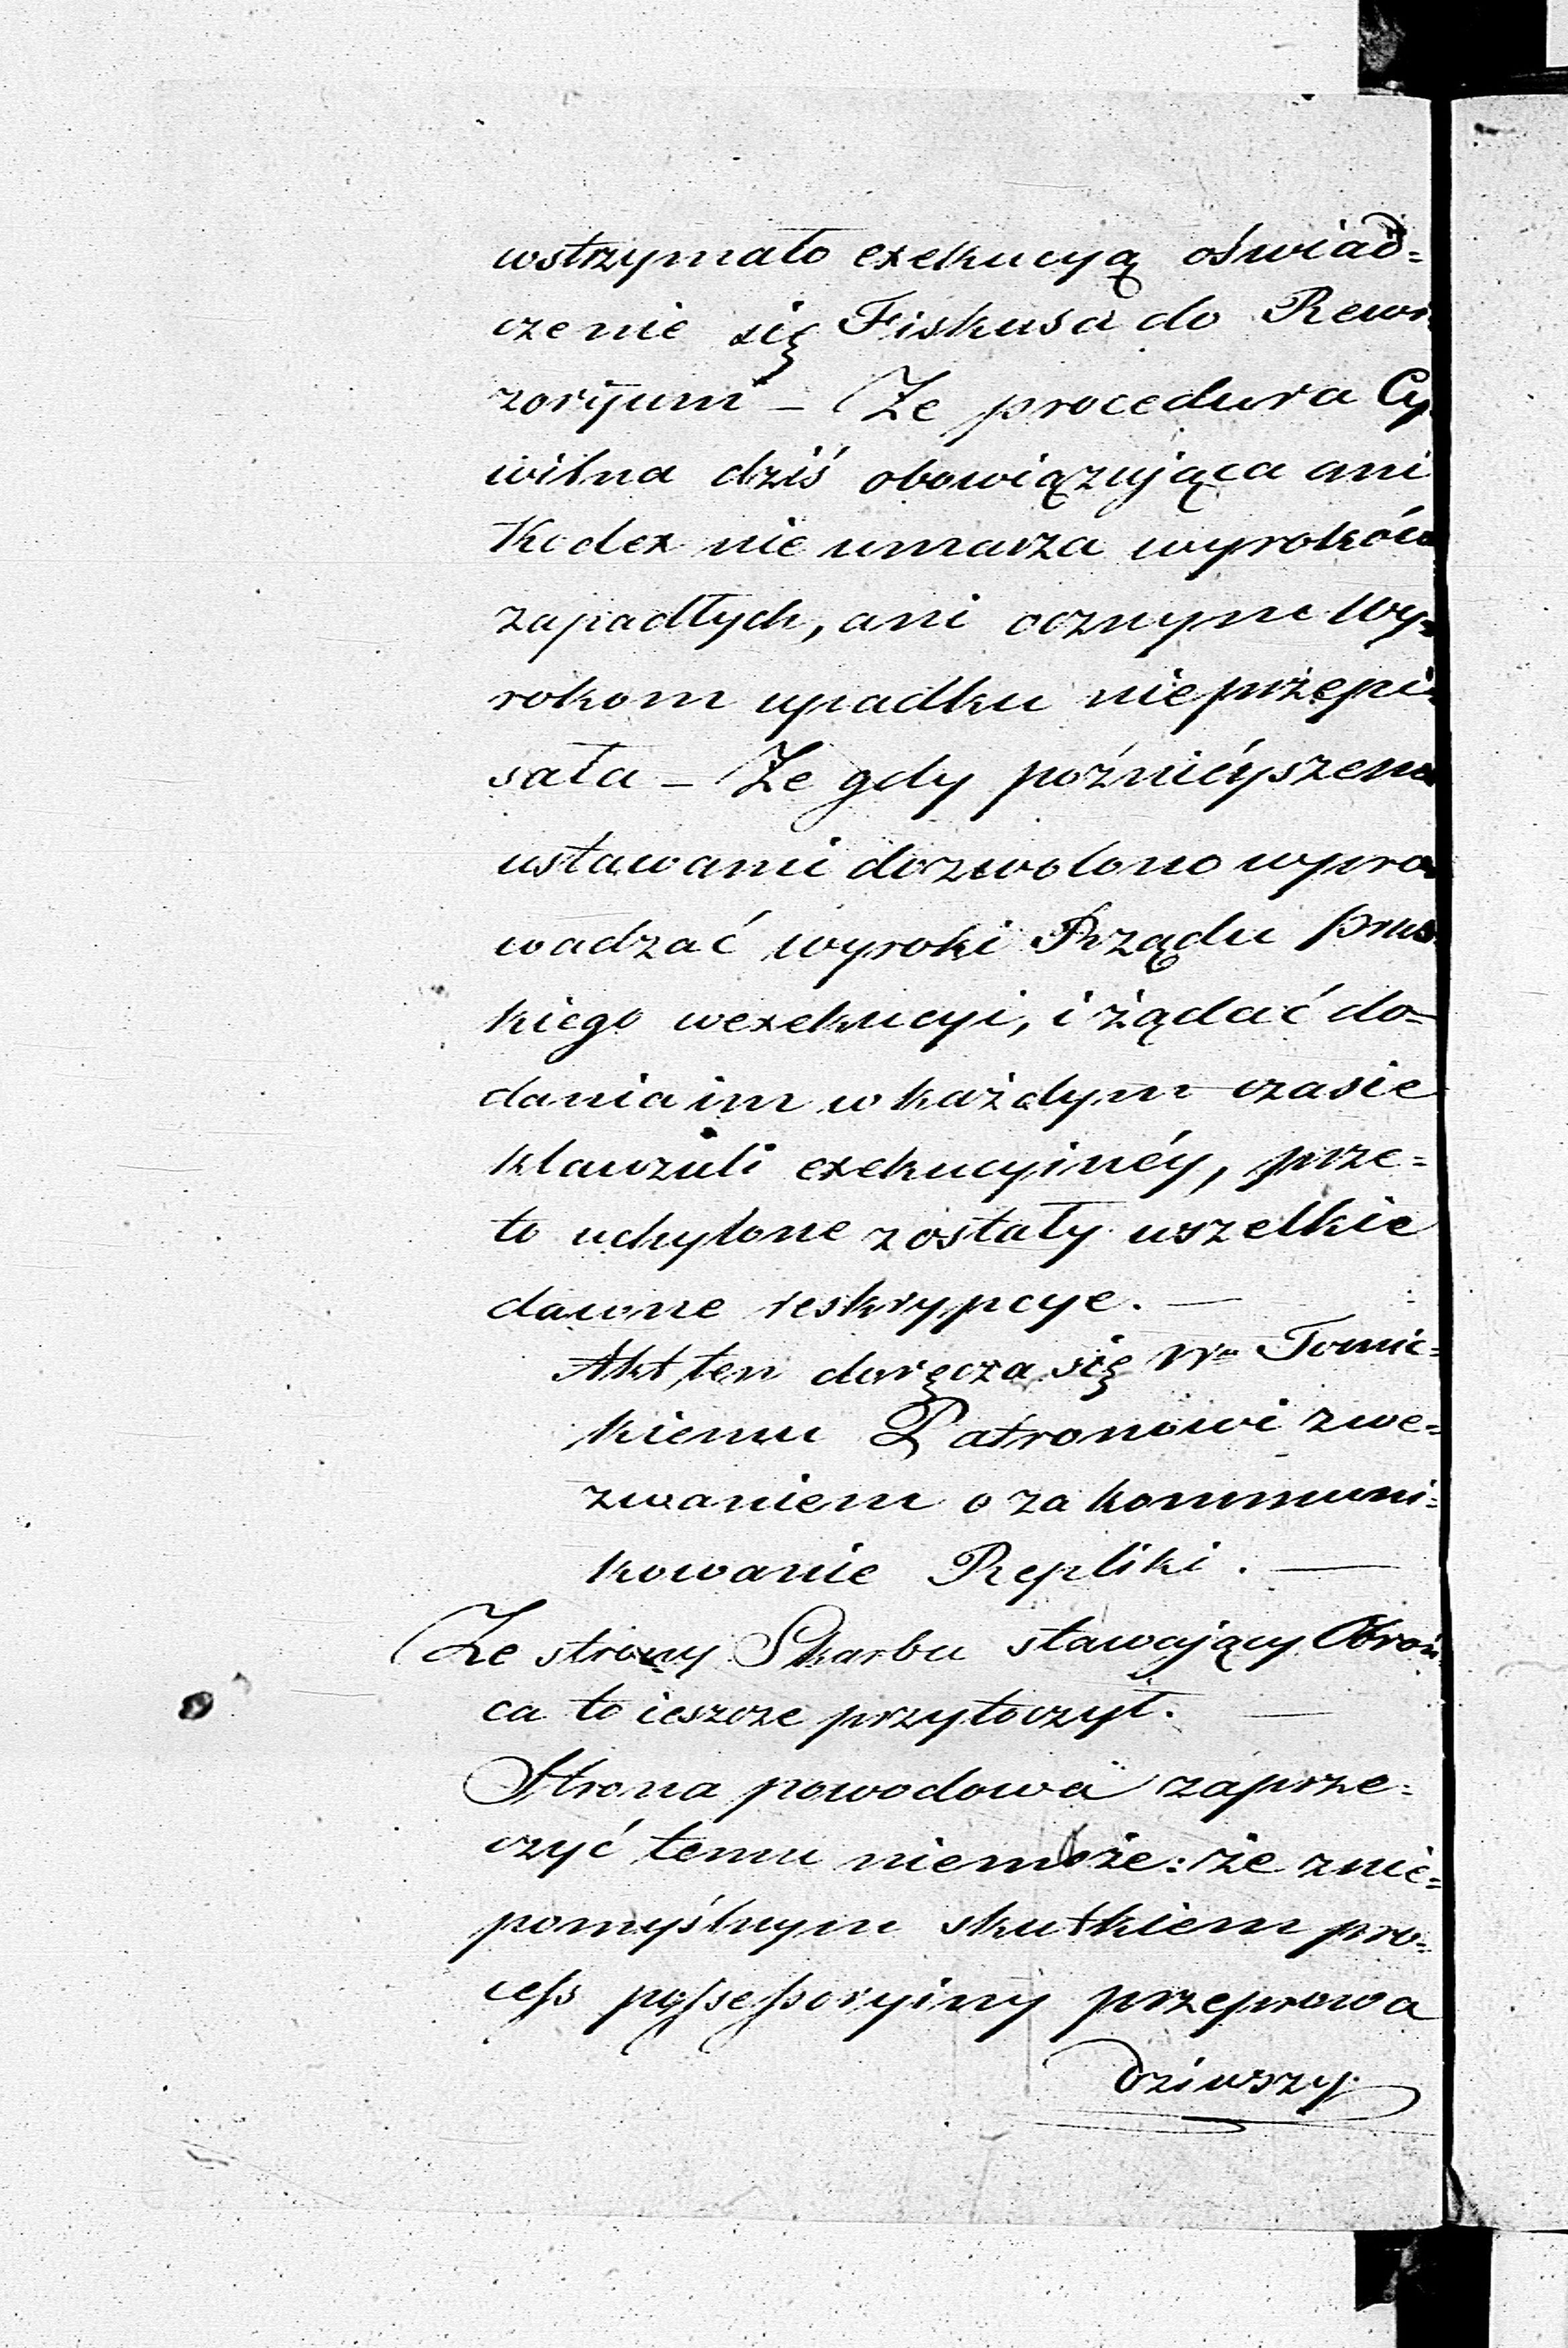 wstrzymało exekucyą oświad=
czenie się Fiskusa do Rewi
zoryum – Że procedura Cy
wilna dziś obowiązująca ani
Kodex nie umarza wyroków
zapadłych, ani ocznym Wy=
rokom upadku nieprzepi=
sała – Że gdy poźnieyszemi
ustawami dozwolono wypro
wadzać wyroki Rządu prus
kiego wexekucyi, i żądać do=
dania im w każdym czasie
klawzuli exekucyinéy, prze=
to uchylone zostały wszelkie
dawne reskrypcye. —
Akt ten doręcza się Wu Tomic=
kiemu Patronowi zwe=
zwaniem o zakommuni=
kowanie Repliki. —
Ze strony Skarbu stawający Obroń
ca to ieszcze przytoczył. —
Strona powodowa zaprze=
czyć temu niemoże: że znie=
pomyślnym skutkiem pro=
cess possessoryiny przeprowa
dziwszy